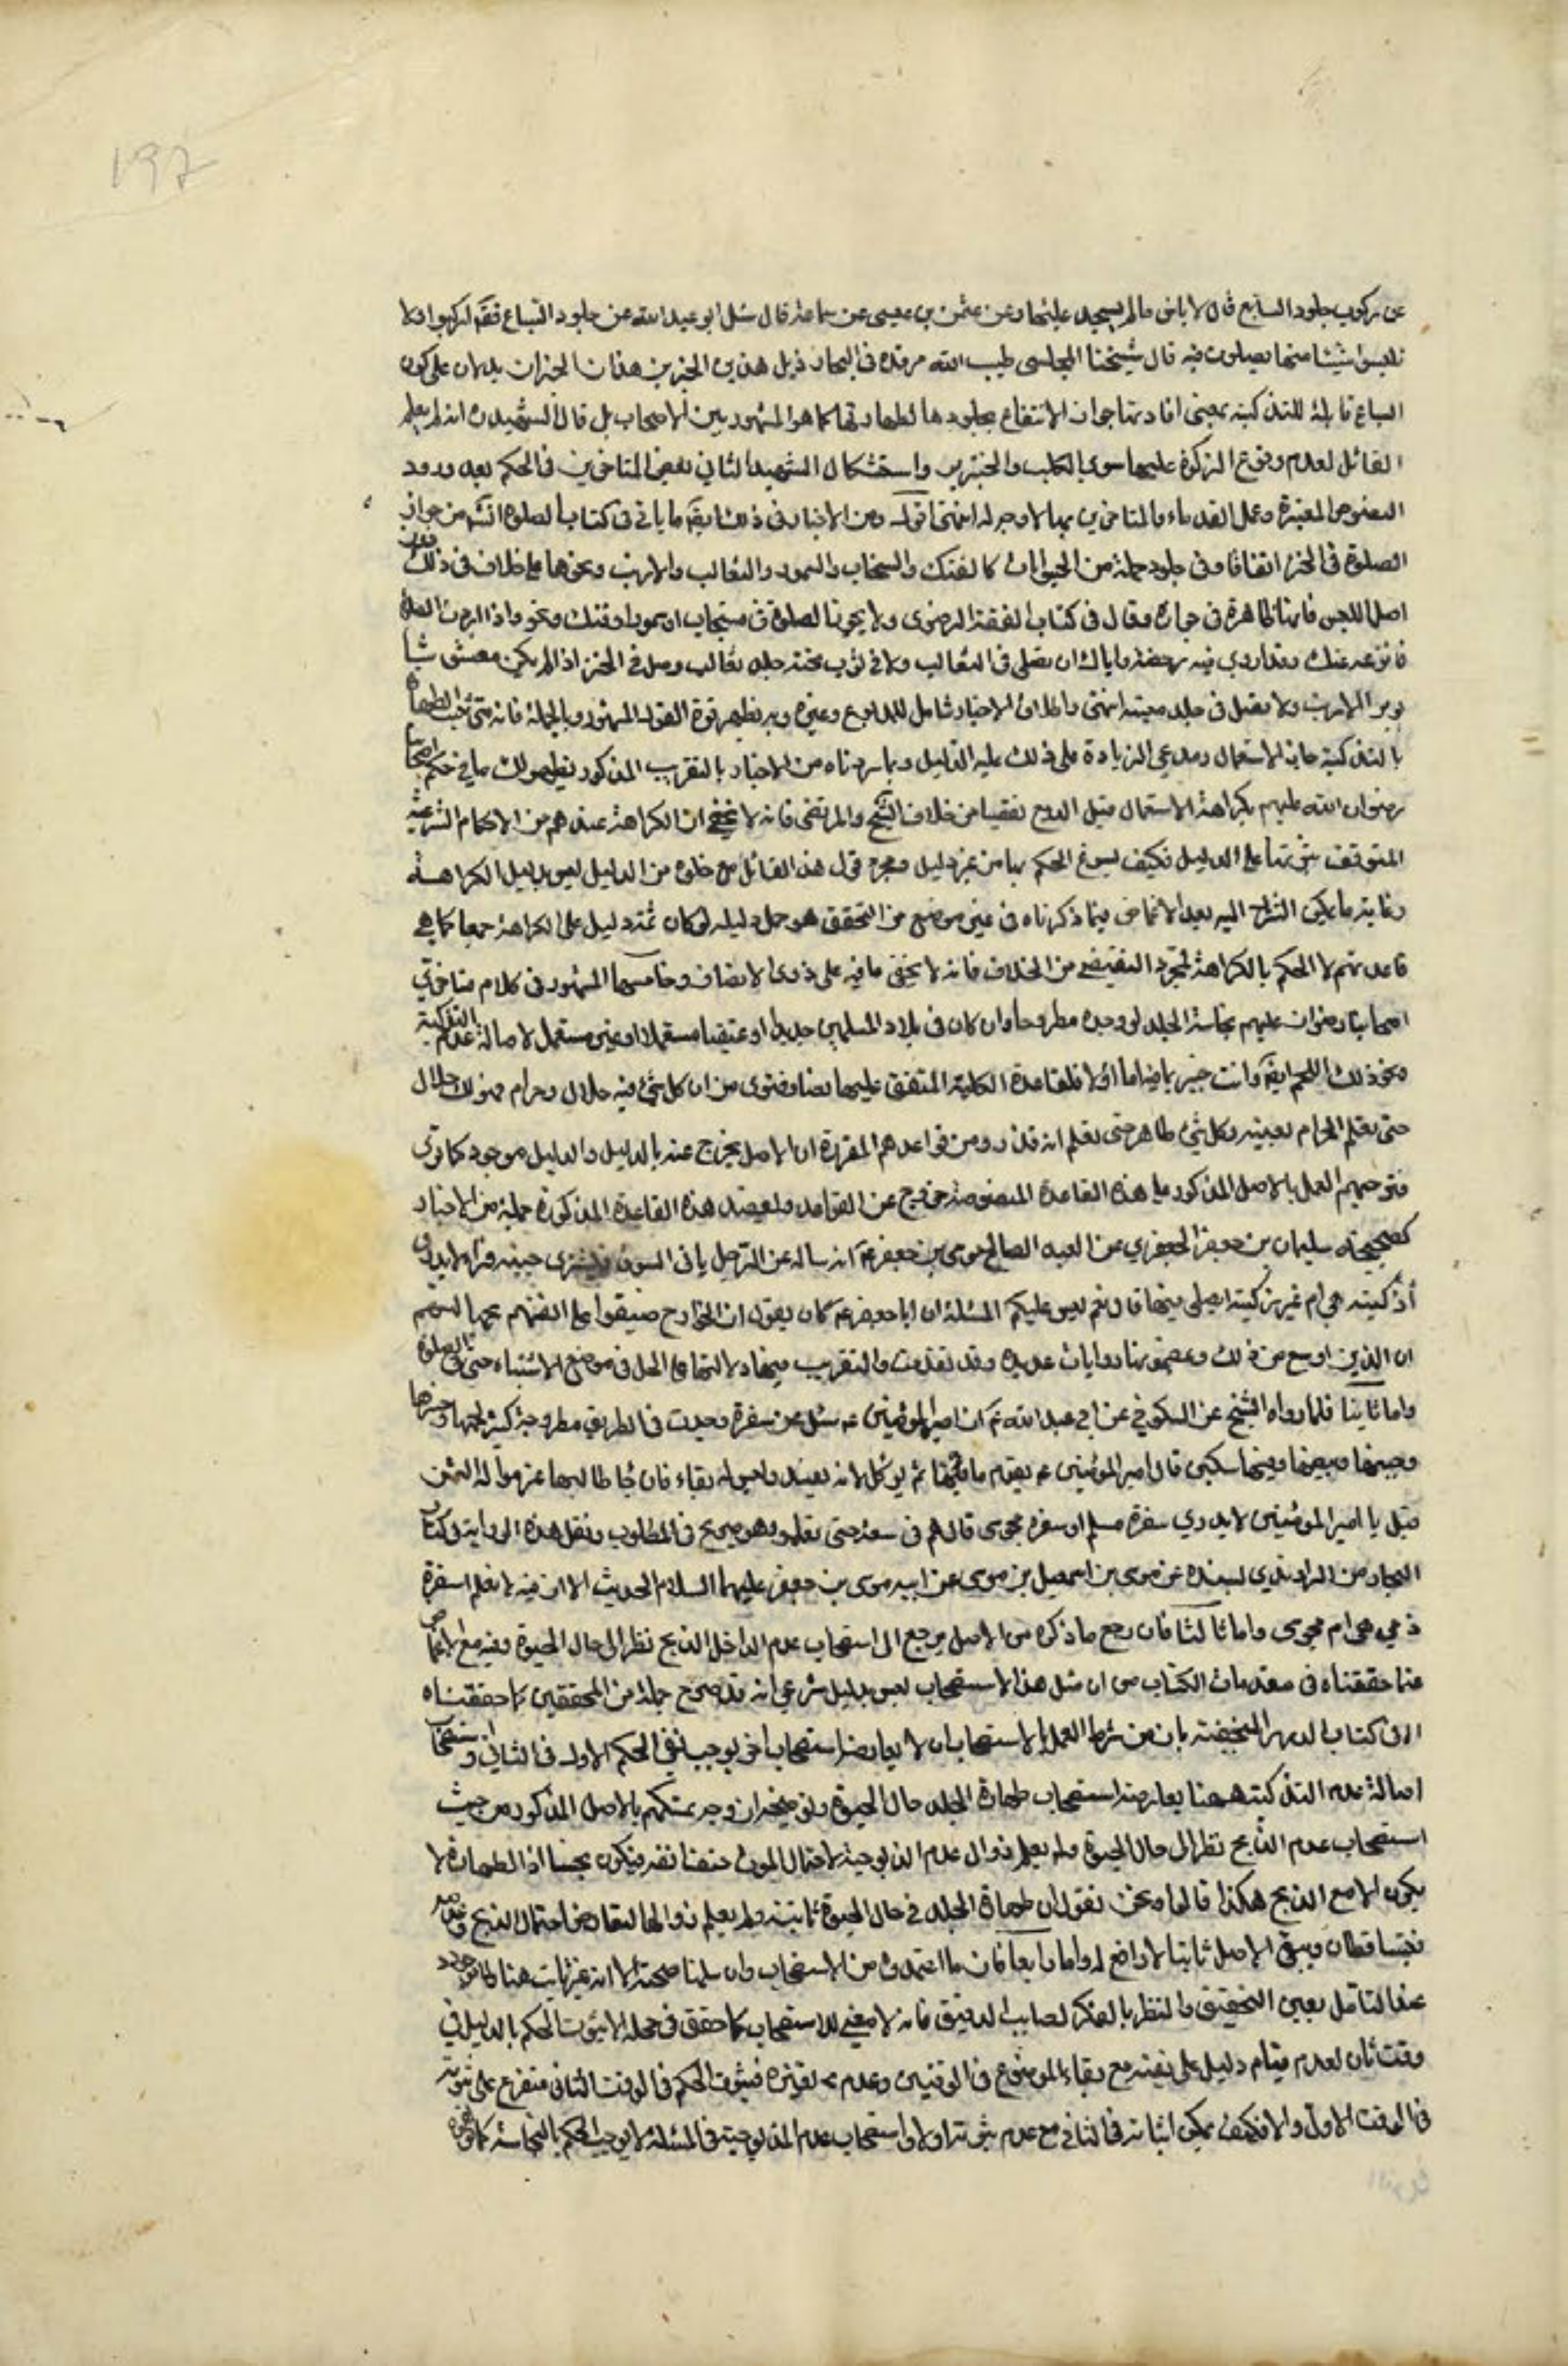 197
عن ركوب جلود السباع قال لا باس ما لم يسجد عليها وعن عثمن بن عيسى عن سماعة قال سئل ابو عبد الله عن جلود السباع فقال اركبوا ولا
تلبسوا شيئا منها تصلون فيه قال شيخنا المجلسى طيب الله مرقده فى البحار ذيل هذين الخبرين هذان الخبران يدلان على كون
السباع قابلة للتذكية بمعنى افادتها جواز الانتفاع بجلودها لطهارتها كما هو المشهور بين الاصحاب بل قال الشهيد انه لم يعلم
القائل لعدم وقوع الزكوة عليها سوى الكلب والخنزير واستشكال الشهيد الثانى بعض المتاخرين فى الحكم بعد ورود
النصوص المعتبرة وعمل القدماء والمتاخرين بها لا وجه له انتهى اقول ومن الاخبار فى ذلك ايضا ما ياتى فى كتاب الصلوة انش من جواز
الصلوة فى الخز اتفاقا وفى جلود جملة من الحيوانات كالفنك والسنجاب والسمور والثعالب والارانب ونحوها على خلاف فى ذلك
اصلا للبس فانها طاهرة فى حياته وقال فى كتاب الفقه الرضوى ولا يجوز الصلوة فى سنجاب او سمور او فنك ونحو واذا اردت الصلوة
فانزعه عنك وقد اروى فيه رخصة واياك ان تصلى فى الثعالب ولا فى ثوب تحته جلد ثعالب وصل فى الخز اذا لم يكن مغشوشا
بوبر الارانب ولا تصل فى جلد ميتة انتهى واطلاق الاخبار شامل للمدبوغ وغيره وبه تظهر قوة القول المشهور وبالجملة فانه متى ثبت الطهارة
بالتذكية جاز الاستعمال ومدعى الزيادة على ذلك عليه الدليل وبما سردناه من الاخبار بالتقريب المذكور يظهر لك ما فى حكم اصحابنا
رضوان الله عليهم بكراهة الاستعمال قبل الدبغ تفصيا من خلاف الشيخ والمرتضى فانه لا يخفى ان الكراهة عندهم من الاحكام الشرعية
المتوقف ثبوتها على الدليل فكيف يسوغ الحكم بها من غير دليل ومجرد قول هذا القائل مع خلوه من الدليل ليس بدليل الكراهة
وغاية ما يمكن التنزل اليه بعد الاغماض فيما ذكرناه فى غير موضع من التحقيق هو حمل دليله لو كان ثمة دليل على الكراهة جمعا كما هى
قاعدتهم لا الحكم بالكراهة لمجرد التفصى من الخلاف فانه لا يخفى ما فيه على ذوى الانصاف وخامسها المشهور فى كلام متاخرى
اصحابنا رضوان عليهم نجاسة الجلد لو وجد مطروحا وان كان فى بلاد المسلمين جديدا او عتيقا مستعملا او غير مستعمل لاصالة عدم التذكية
ونحو ذلك اللحم ايضا وانت خبير بما فيه اما اولا فلقاعدة الكلية المتفق عليها نصا وفتوى من ان كل شئ فيه حلال وحرام فهو لك حلال
حتى تعلم الحرام بعينه وكل شئ طاهر حتى تعلم انه قذر ومن قواعدهم المقررة ان الاصل يخرج عنه بالدليل والدليل موجود كما ترى
فترجيحهم العمل بالاصل المذكور على هذه القاعدة المنصوصة خروج عن القواعد ويعضد هذه القاعدة المذكورة جملة من الاخبار
كصحيحة سليمان بن جعفر الجعفرى عن العبد الصالح موسى بن جعفر ع انه ساله عن الرجل ياتى السوق فيشترى جبة فراء لا يدرى
أذكية هى ام غير زكية ايصلى فيها قال نعم ليس عليكم المسئلة ان ابا جعفر ع كان يقول ان الخوارج ضيقوا على انفسهم بجهالتهم
ان الدين اوسع من ذلك وبمضمونها روايات عديدة وقد تقدمت والتقريب فيها دلالتها على الحل فى موضع الاشتباه حتى فى الصلوة
واما ثانيا فلما رواه الشيخ عن السكونى عن ابى عبد الله ع ان امير المؤمنين ع سئل عن سفرة وجدت فى الطريق مطروحة كثير لحمها وخبزها
وجبنها وبيضها وفيها سكين قال امير المؤمنين ع يقوم ما فيها ثم يوكل لانه يفسد وليس له بقاء فان جاء طالبها غرموا له الثمن
قيل يا امير المومنين لا يدرى سفرة مسلم او سفرة مجوسى قال هم فى سعة حتى يعلموا وهو صريح فى المطلوب ونقل هذه الرواية فى كتاب
البحار من الراوندى بسنده عن موسى بن اسمعيل بن موسى عن ابيه موسى بن جعفر عليهما السلام الحديث الا ان فيه لا يعلم اسفرة
ذمى هى ام مجوسى واما ثالثا فان مرجع ما ذكره من الاصل يرجع الى استصحاب عدم الداخل الذبح نظرا الى حال الحيوة وفيه مع الاغماض
عما حققناه فى مقدمات الكتاب من ان مثل هذا الاستصحاب ليس بدليل شرعى انه قد صرح جملة من المحققين كما حققناه
فى كتاب الدرر النجفية بان من شرط العمل بالاستصحاب ان لا يعارضه استصحاب اخر يوجب نفى الحكم الاول فى الثانى واستصحاب
اصالة عدم التذكية ههنا يعارضه استصحاب طهارة الجلد حال الحيوة وتوضيحه ان وجه تمسكهم بالاصل المذكور من حيث
استصحاب عدم الذبح نظرا الى حال الحيوة ولم يعلم زوال عدم المذبوحية لاحتمال الموت حتفا نفه فيكون نجسا اذ الطهارة لا
يكون الا مع الذبح هكذا قالوا ونحن نقول ان طهارة الجلد فى حال الحيوة ثابتة ولم يعلم زوالها لتعارض احتمال الذبح وعدمه
فيتساقطان ويبقى الاصل ثابتا لا رافع له واما رابعا فان ما اعتمدوه من الاستصحاب وان سلمنا صحته الا انه غير ثابت هنا
عند التامل بعين التحقيق والنظر بالفكر الصايب الدقيق فانه لا معنى للاستصحاب كما حقق فى محله الا ثبوت الحكم بالدليل فى
وقت ثان لعدم قيام دليل على نفيه مع بقاء الموضوع فى الوقتين وعدم تغيره فثبوت الحكم فى الوقت الثانى متفرع على ثبوته
فى الوقت الاول والا فكيف يمكن اثباته فى الثانى مع عدم ثبوته اولا واستصحاب عدم المذبوحية فى المسئلة لا يوجب الحكم بالنجاسة